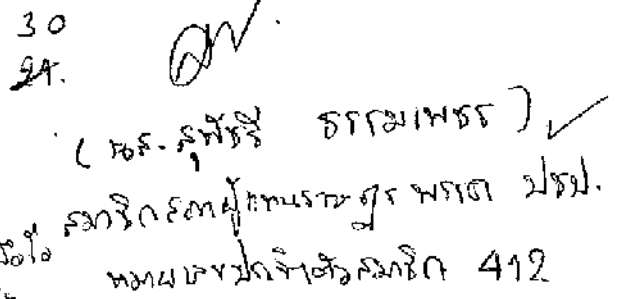 30
24.
( นส. สุพัชรี ธรรมเพชร )
สมาชิกสภาผู้แทนราษฎร พรรค ปชป.
หมายเลขประจำตัวสมาชิก 412